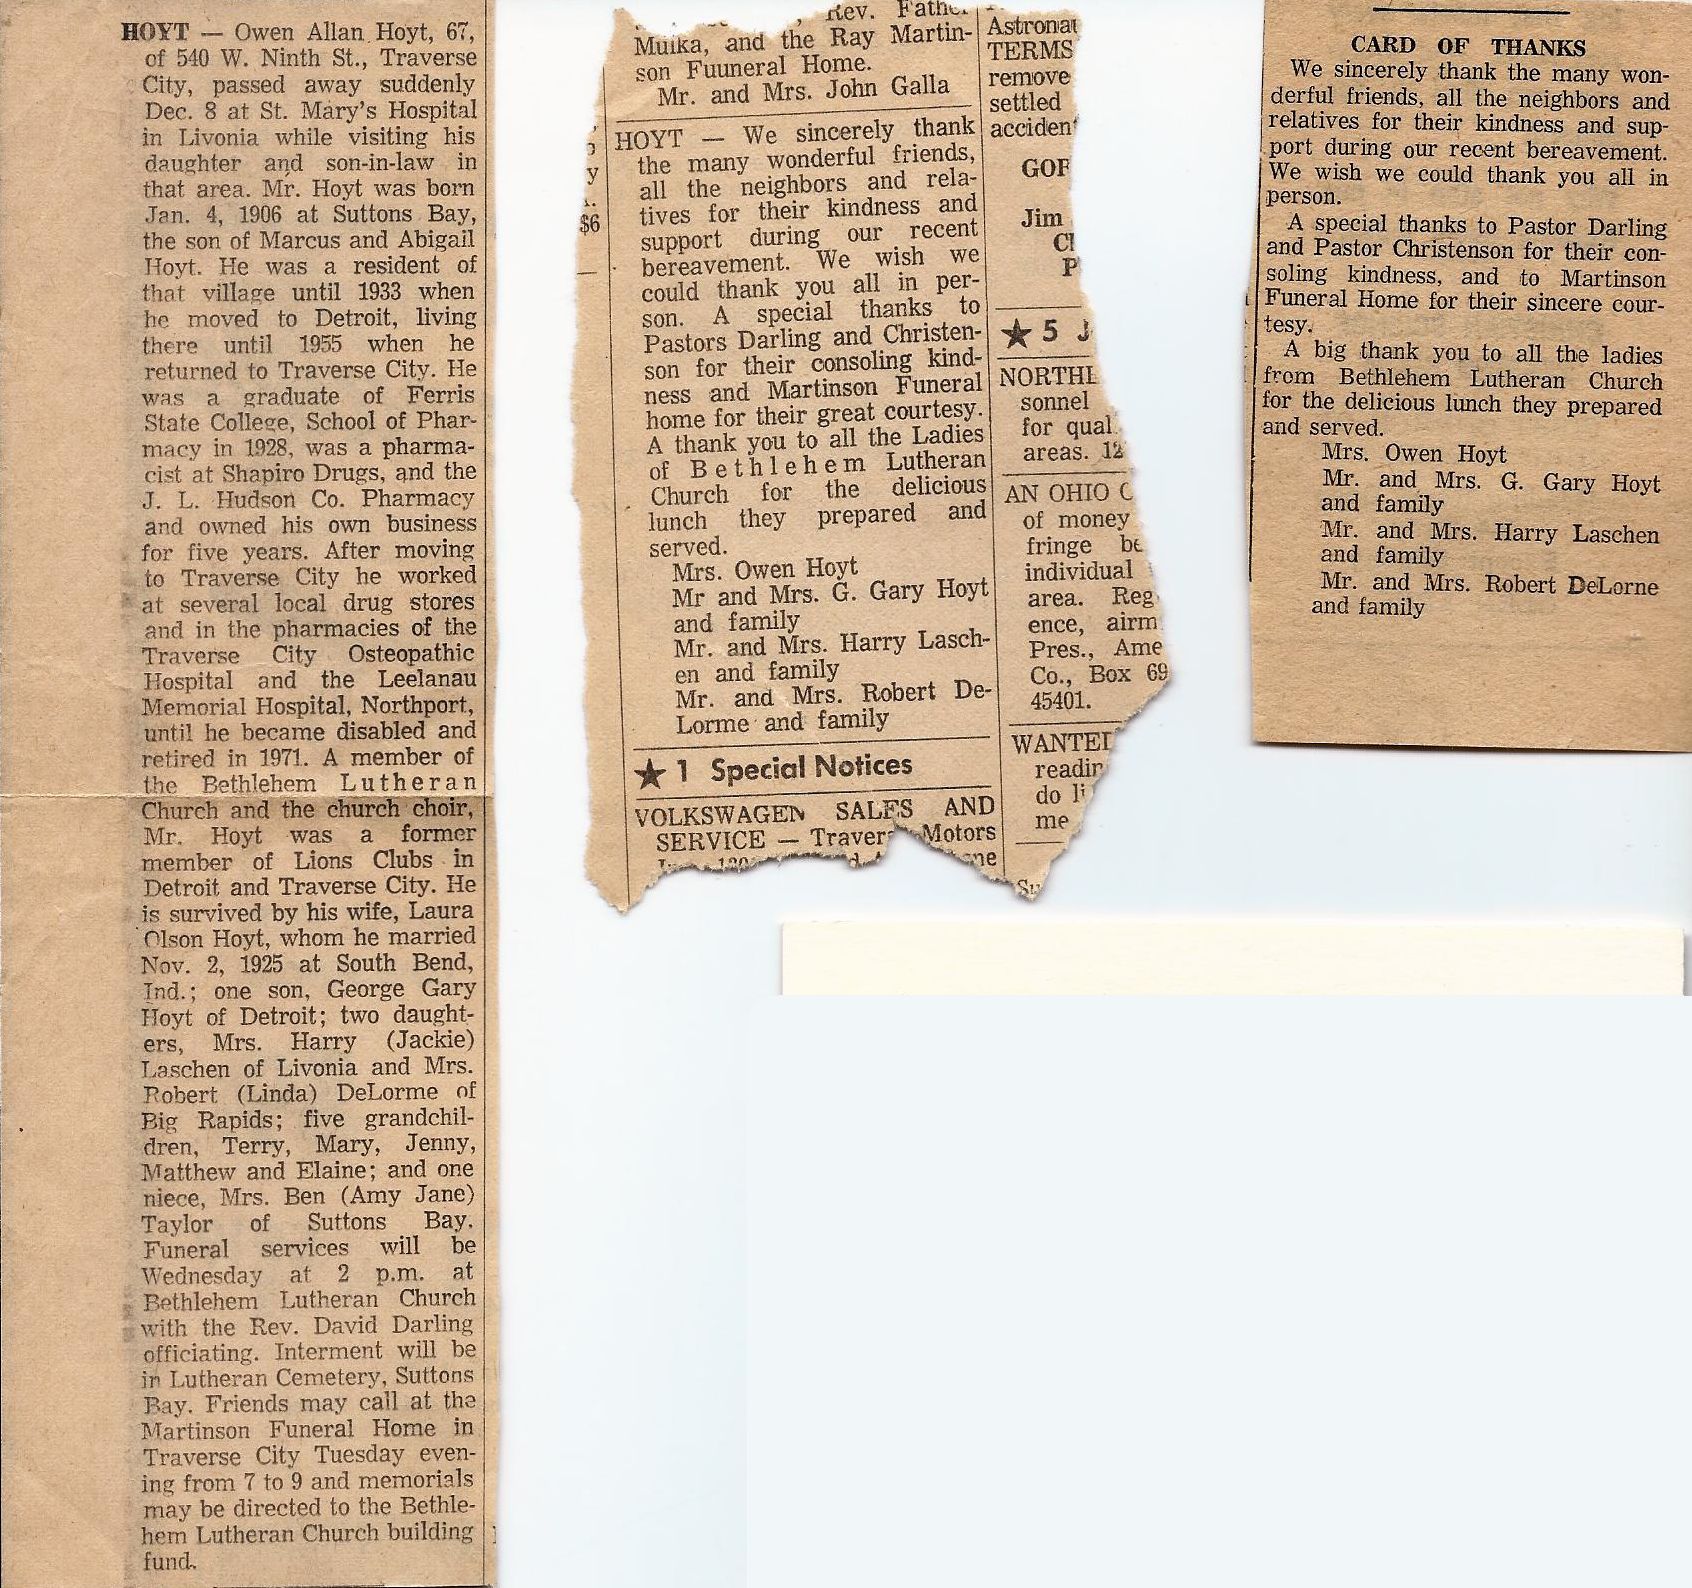 HOYT — Owen Allan Hoyt, 67,
of 540 W. Ninth St., Traverse
City, passed away suddenly
Dec. 8 at St. Mary's Hospital
in Livonia while visiting his
daughter and son-in-law in
that area. Mr. Hoyt was born
Jan. 4, 1906 at Suttons Bay,
the son of Marcus and Abigail
Hoyt. He was a resident of
that village until 1933 when
he moved to Detroit, living
there until 1955 when he
returned to Traverse City. He
was a graduate of Ferris
State College, School of Phar-
macy in 1928, was a pharma-
cist at Shapiro Drugs, and the
J. L. Hudson Co. Pharmacy
and owned his own business
for five years. After moving
to Traverse City he worked
at several local drug stores
and in the pharmacies of the
Traverse City Osteopathic
Hospital and the Leelanau
Memorial Hospital, Northport,
until he became disabled and
retired in 1971. A member of
the Bethlehem Lutheran
Church and the church choir,
Mr. Hoyt was a former
member of Lions Clubs in
Detroit and Traverse City. He
is survived by his wife, Laura
Olson Hoyt, whom he married
Nov. 2, 1925 at South Bend,
Ind.; one son, George Gary
Hoyt of Detroit; two daught-
ers, Mrs. Harry (Jackie)
Laschen of Livonia and Mrs.
Robert (Linda) DeLorme of
Big Rapids; five grandchil-
dren, Terry, Mary, Jenny,
Matthew and Elaine; and one
niece, Mrs. Ben (Amy Jane)
Taylor of Suttons Bay.
Funeral services will be
Wednesday at 2 p.m. at
Bethlehem Lutheran Church
with the Rev. David Darling
officiating. Interment will be
in Lutheran Cemetery, Suttons
Bay. Friends may call at the
Martinson Funeral Home in
Traverse City Tuesday even-
ing from 7 to 9 and memorials
may be directed to the Bethle-
hem Lutheran Church building
fund.
Rev. Father
Mulka, and the Ray Martin-
son Fuuneral Home.
Mr. and Mrs. John Galla
HOYT — We sincerely thank
the many wonderful friends,
all the neighbors and rela-
tives for their kindness and
support during our recent
bereavement. We wish we
could thank you all in per-
son. A special thanks to
Pastors Darling and Christen-
son for their consoling kind-
ness and Martinson Funeral
home for their great courtesy.
A thank you to all the Ladies
of Bethlehem Lutheran
Church for the delicious
lunch they prepared and
served.
Mrs. Owen Hoyt
Mr and Mrs. G. Gary Hoyt
and family
Mr. and Mrs. Harry Lasch-
en and family
Mr. and Mrs. Robert De-
Lorme and family
★ 1 Special Notices
VOLKSWAGEN SALES AND
SERVICE — Travers Motors
y
$6
Astronau
TERMS
remove
settled
accident
GOR
Jim
P
★ 5 J
NORTHL
sonnel
for qual
areas. 12
AN OHIO C
of money
fringe be
individual
area. Reg
ence, airm
Pres., Ame
Co., Box 69
45401.
WANTED
readin
do li
me
CARD OF THANKS
We sincerely thank the many won-
derful friends, all the neighbors and
relatives for their kindness and sup-
port during our recent bereavement.
We wish we could thank you all in
person.
A special thanks to Pastor Darling
and Pastor Christenson for their con-
soling kindness, and to Martinson
Funeral Home for their sincere cour-
tesy.
A big thank you to all the ladies
from Bethlehem Lutheran Church
for the delicious lunch they prepared
and served.
Mrs. Owen Hoyt
Mr. and Mrs. G. Gary Hoyt
and family
Mr. and Mrs. Harry Laschen
and family
Mr. and Mrs. Robert DeLorne
and family